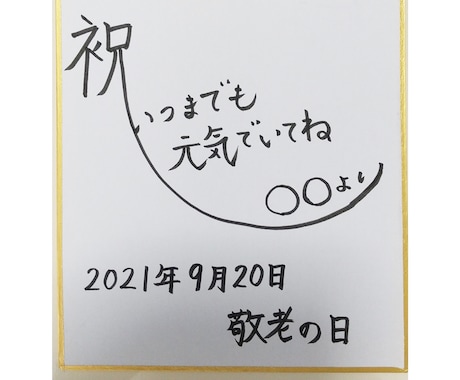 祝
いつまでも
元気でいてね
〇〇より
2021年9月20日
敬老の日